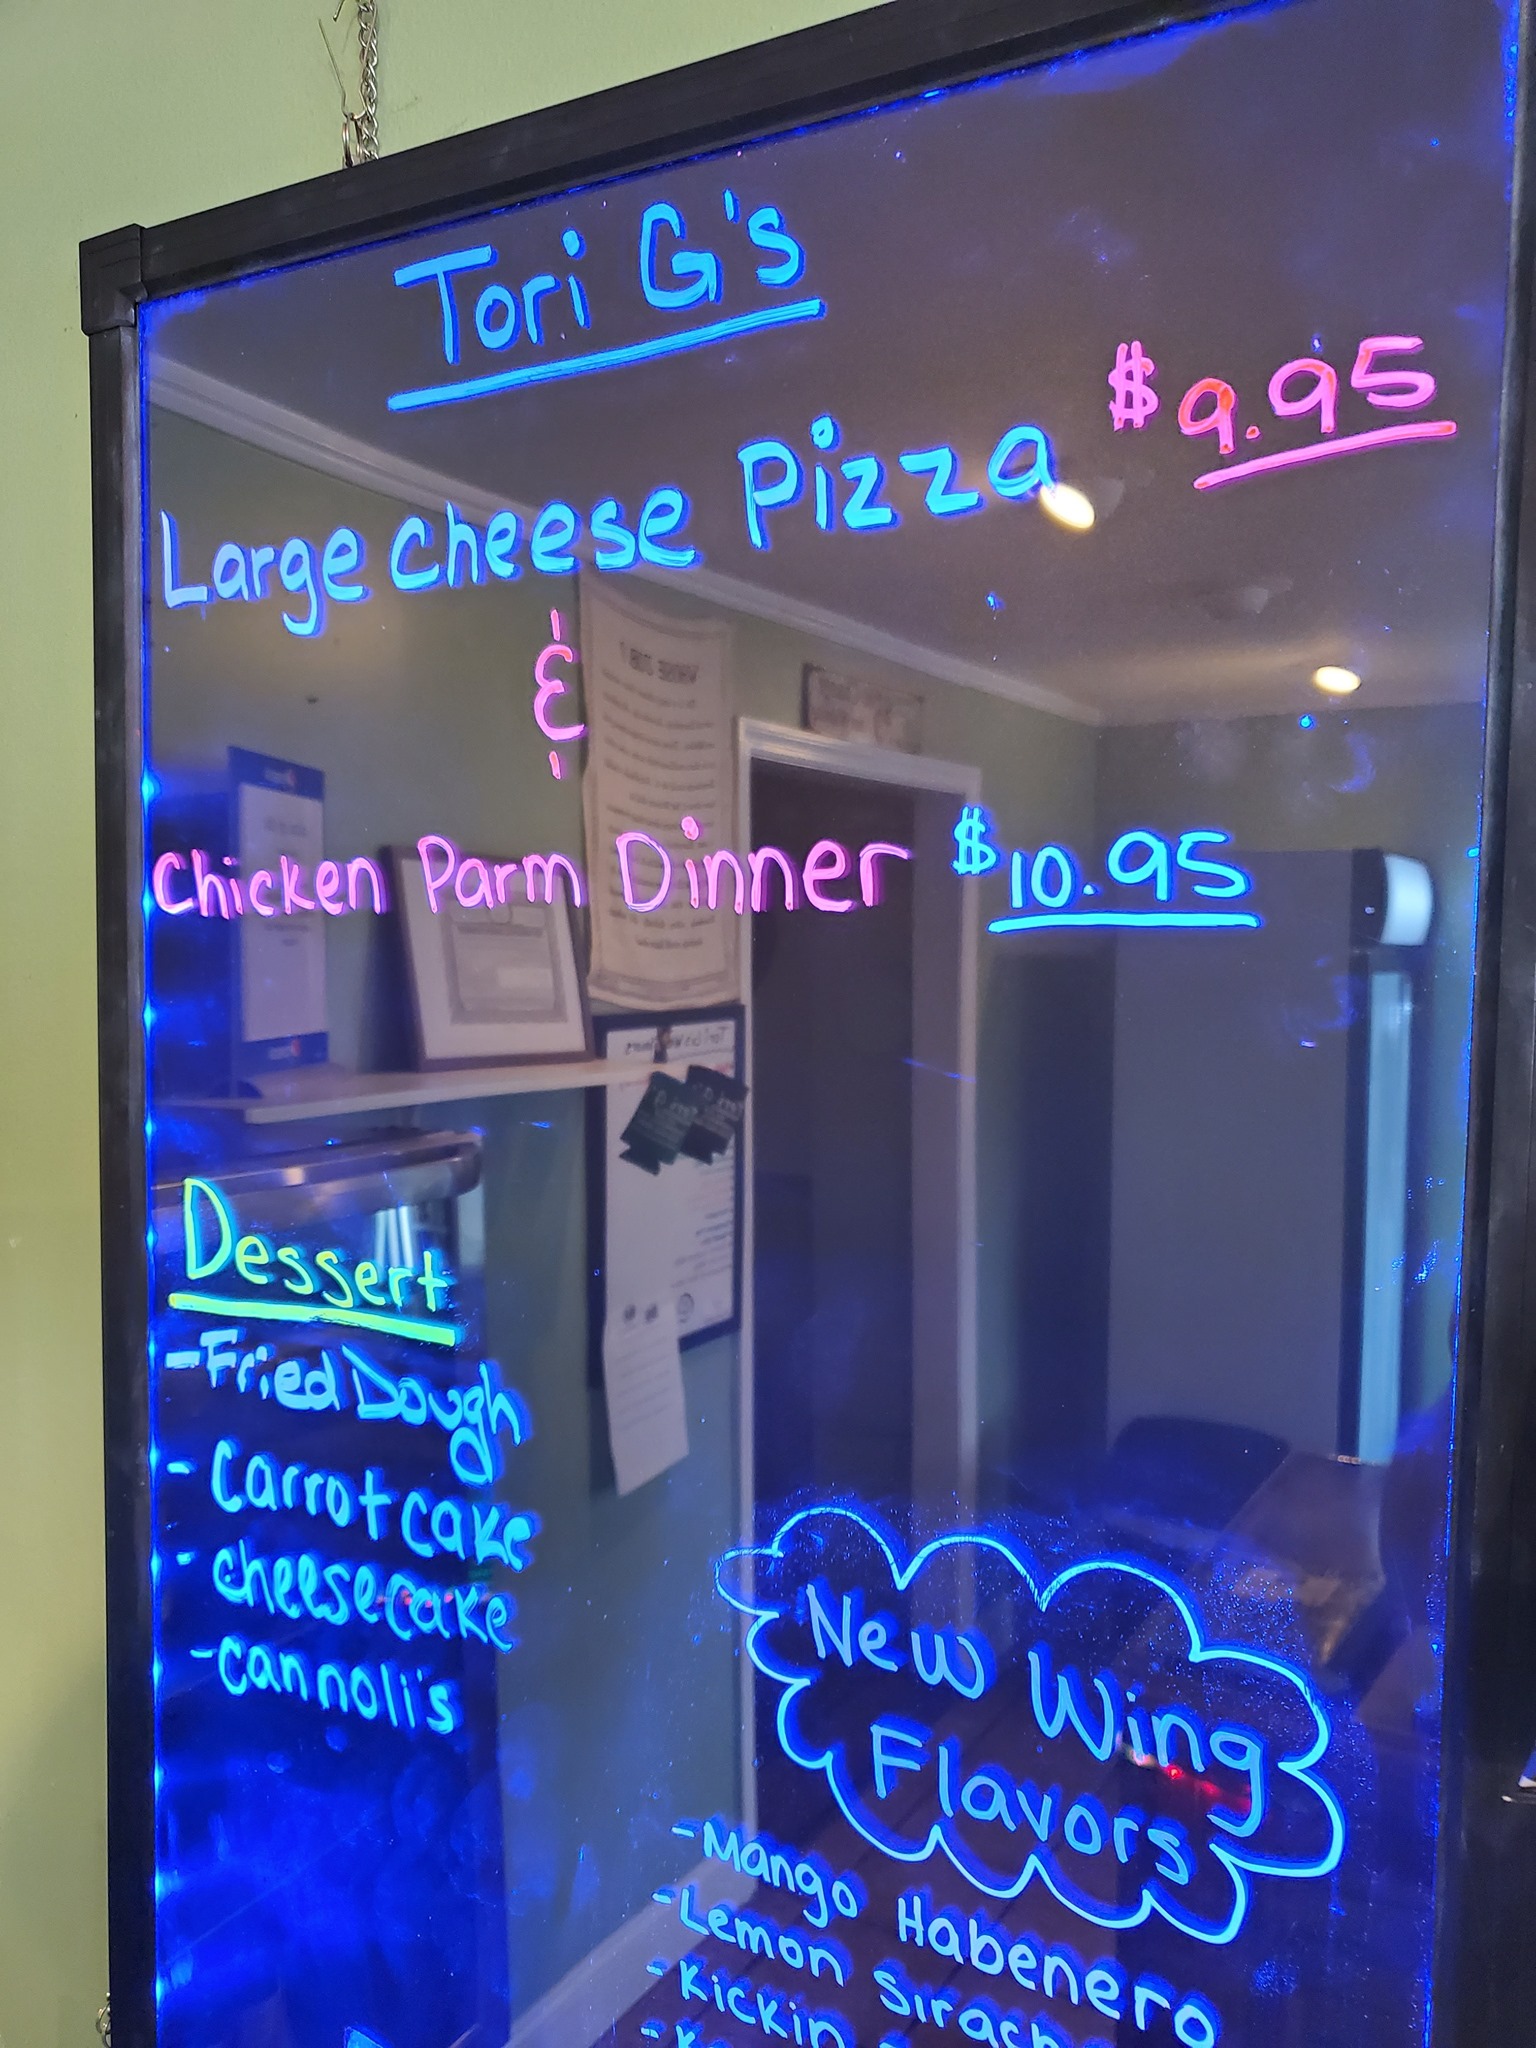 Tori G's
Large Cheese Pizza $9.95
&
Chicken Parm Dinner $10.95
Dessert
- Fried Dough
- Carrot cake
- cheesecake
- cannoli's
New Wing
Flavors
- Mango Habenero
- Lemon
- Kickin